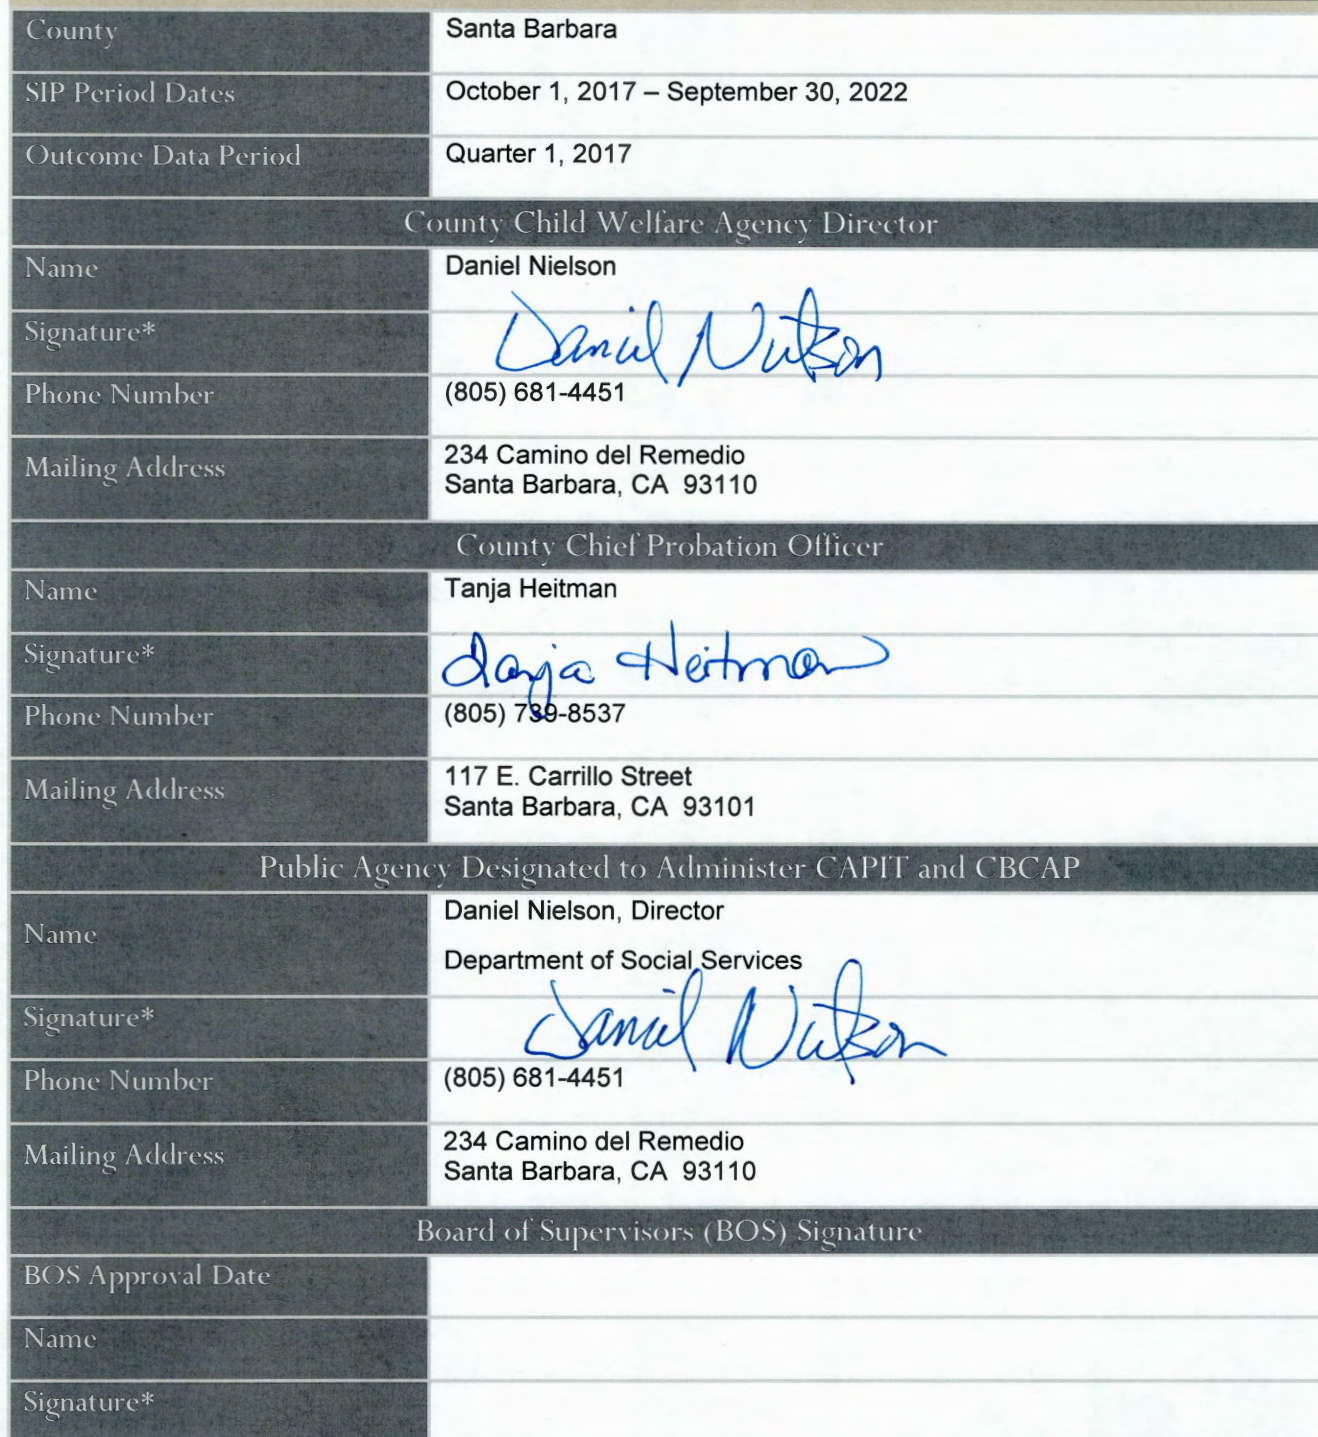 County Santa Barbara
SIP Period Dates October 1, 2017 – September 30, 2022
Outcome Data Period Quarter 1, 2017
County Child Welfare Agency Director
Name Daniel Nielson
Signature* Daniel Nielson
Phone Number (805) 681-4451
Mailing Address 234 Camino del Remedio
Santa Barbara, CA 93110
County Chief Probation Officer
Name Tanja Heitman
Signature* Tanja Heitman
Phone Number (805) 739-8537
Mailing Address 117 E. Carrillo Street
Santa Barbara, CA 93101
Public Agency Designated to Administer CAPIT and CBCAP
Name Daniel Nielson, Director
Department of Social Services
Signature* Daniel Nielson
Phone Number (805) 681-4451
Mailing Address 234 Camino del Remedio
Santa Barbara, CA 93110
Board of Supervisors (BOS) Signature
BOS Approval Date
Name
Signature*